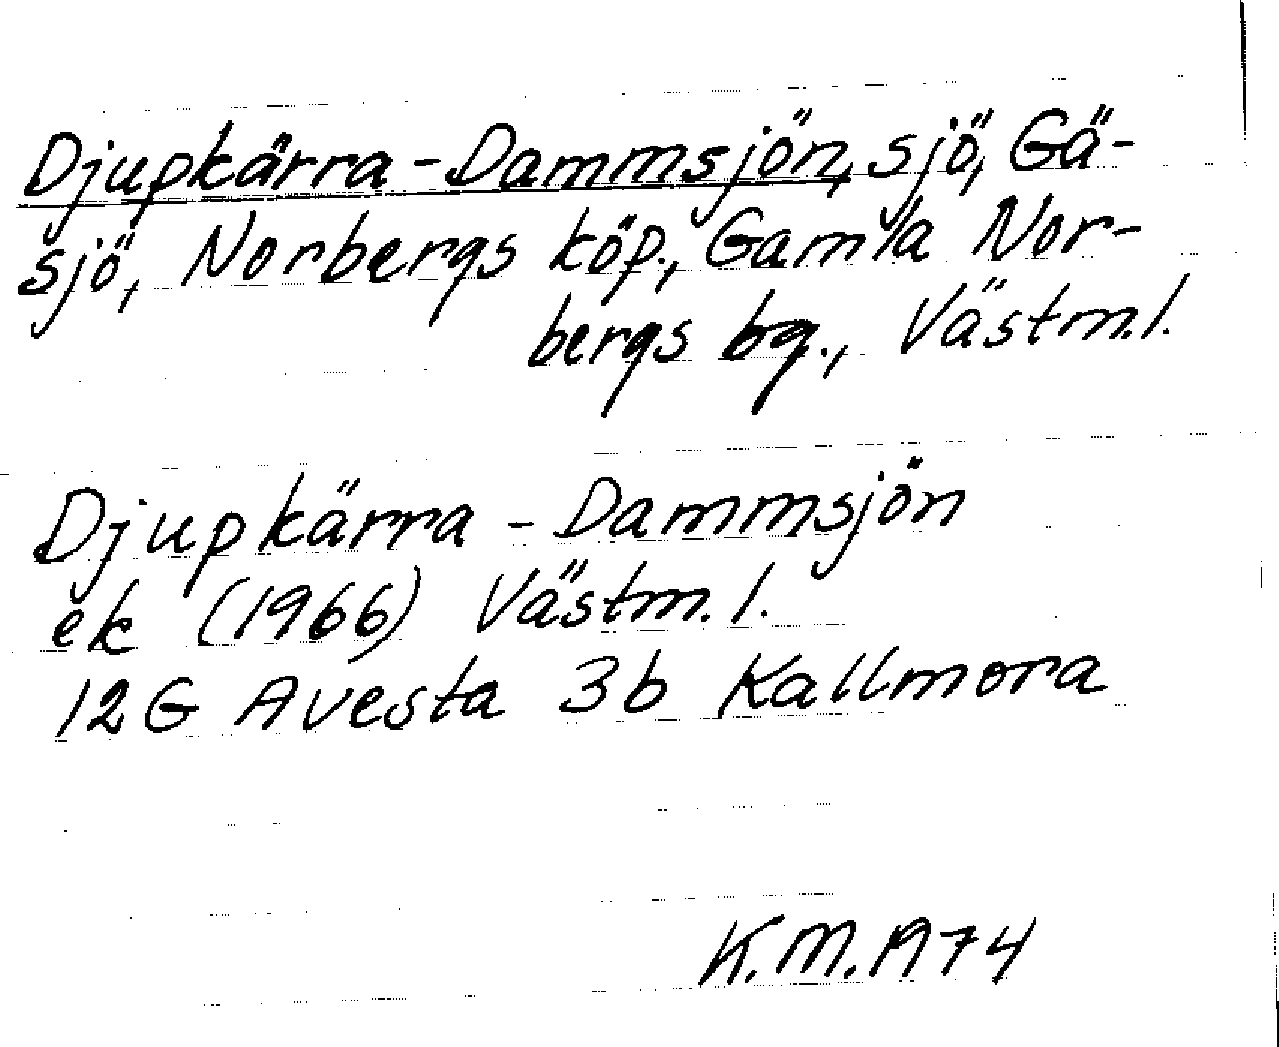 Djupkärra-Dammsjön, sjö, Gä-
sjö, Norbergs köp., Gamla Nor-
bergs bg., Västm.l.
Djupkärra - Dammsjön
ek (1966) Västm. l.
12G Avesta 3b Kallmora
K.M. 1974